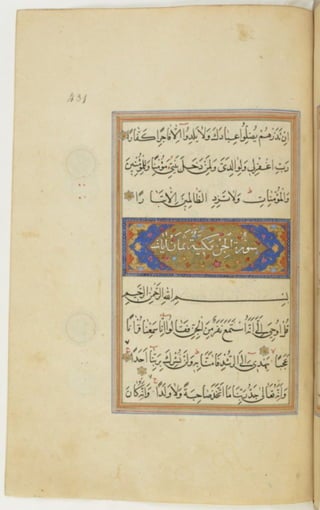 431
اِنْ تَذَرْهُمْ يُضِلُّوا عِبَادَكَ وَلَا يَلِدُوا اِلَّا فَاجِرًا كَفَّارًا
رَبِّ اغْفِرْ لِي وَلِوَالِدَيَّ وَلِمَنْ دَخَلَ بَيْتِيَ مُؤْمِنًا وَلِلْمُؤْمِنِينَ
وَالْمُؤْمِنَاتِ وَلَا تَزِدِ الظَّالِمِينَ اِلَّا تَبَارًا
سورة الجن مكية ثمان
بِسْمِ اللهِ الرَّحْمٰنِ الرَّحِيمِ
قُلْ اُوحِيَ اِلَيَّ اَنَّهُ اسْتَمَعَ نَفَرٌ مِنَ الْجِنِّ فَقَالُوا اِنَّا سَمِعْنَا قُرْاٰنًا
عَجَبًا يَهْدِي اِلَى الرُّشْدِ فَاٰمَنَّا بِهِ وَلَنْ نُشْرِكَ بِرَبِّنَا اَحَدًا
وَاَنَّهُ تَعَالٰى جَدُّ رَبِّنَا مَا اتَّخَذَ صَاحِبَةً وَلَا وَلَدًا وَاَنَّهُ كَانَ